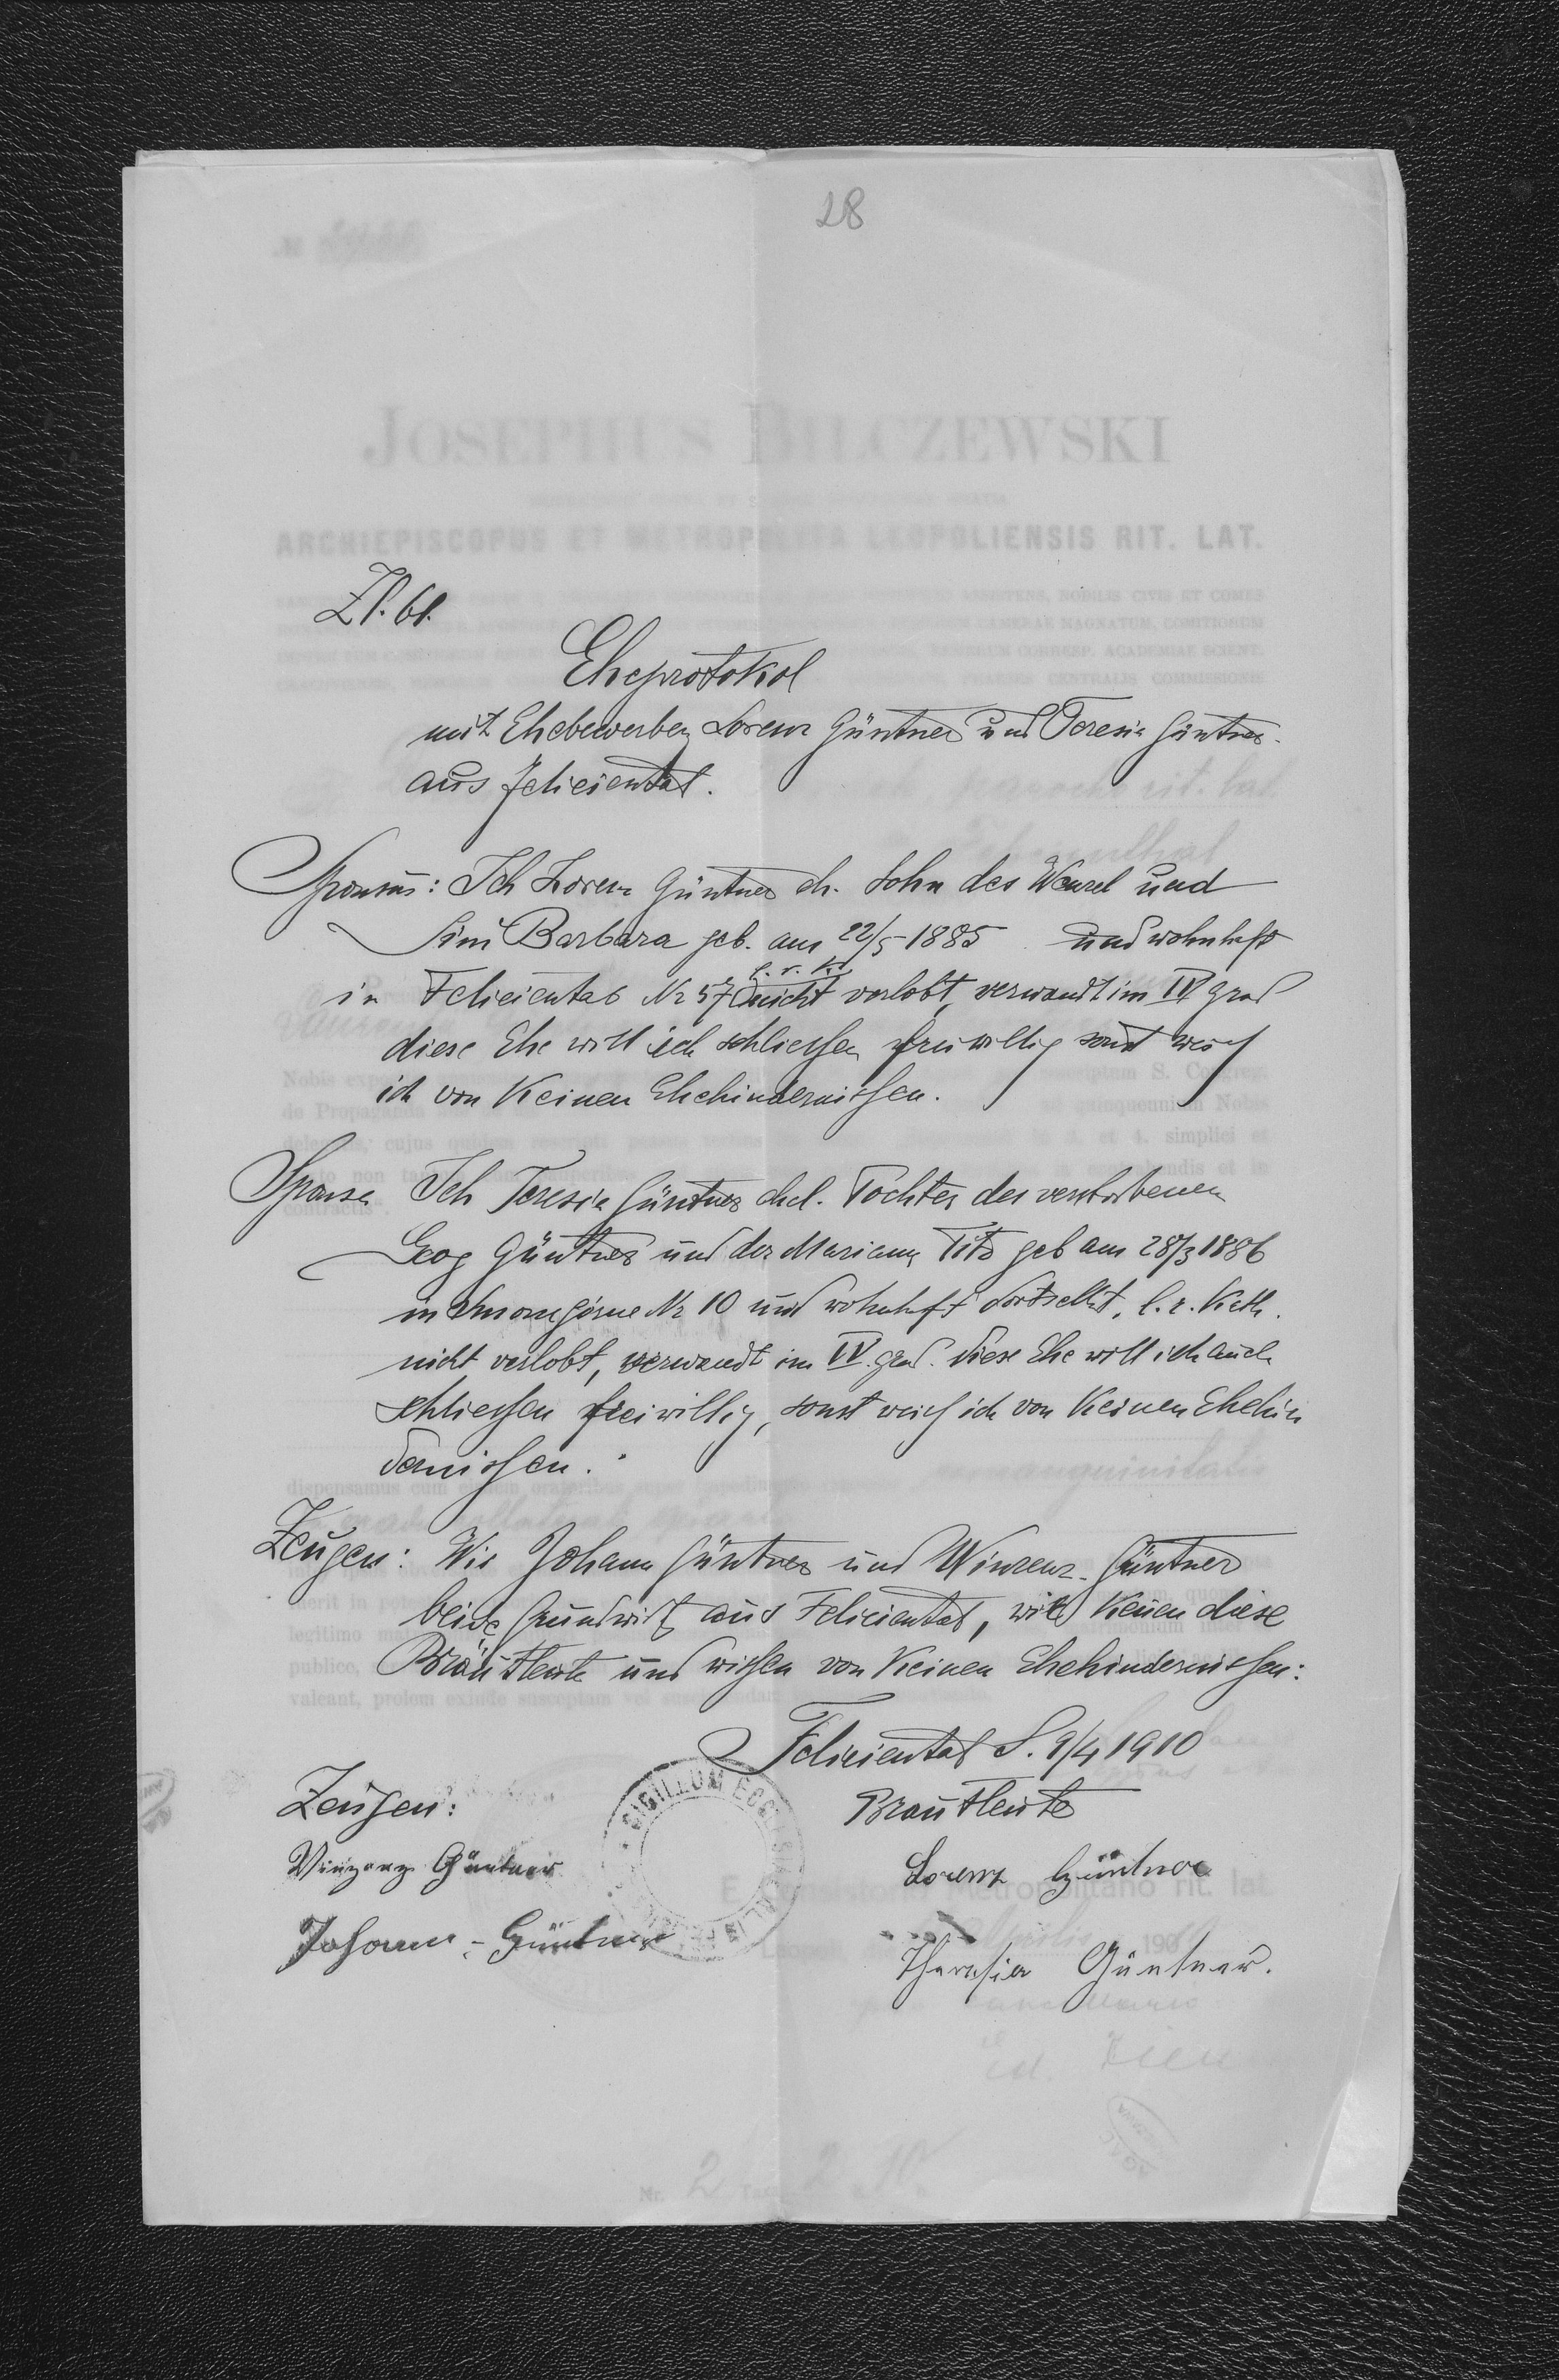 28
JOSEPHUS BILCZEWSKI
ARCHIEPISCOPUS ET METROPOLITA LEOPOLIENSIS RIT. LAT.
Zl. 61.
Eheprotokol
mit Ehebewerber Lorenz Güntner und Teresia Güntner
aus Felicientat.
Sponsus: Ich Lorenz Güntner eh. Sohn des Wenzel und
Barbara geb. am 22/5 1885 und wohnhaft
l. r. K.
in Felicientat Nr 57 nicht verlobt, verwandt im IV grad
diese Ehe will ich schliessen freiwillig sonst weis
ich von Keinen Ehehindernissen.
Sponsa Ich Teresia Güntner ehel. Tochter des verstorbenen
Georg Güntner und der Marianna Titz geb am 28/3 1886
in Nr 10 und wohnhaft dortselbst, l. r. Kath.
nicht verlobt, verwandt im IV. grad. diese Ehe will ich auch
schliessen freiwillig, sonst weis ich von Keinen Ehehin
dernissen.
Zeugen: Wir Johann Güntner und Winzenz Güntner
beide Grundwirt aus Felicientat, wir Kenen diese
Brautleute und wissen von Keinen Ehehindernissen:
Felicientat d. 9/4 1910
Zeugen:
Brautleute
Vinzenz Güntner
Lorenz Güntner
Johann Güntner
Theresia Güntner.
SIGILLUM ECCLESIAE